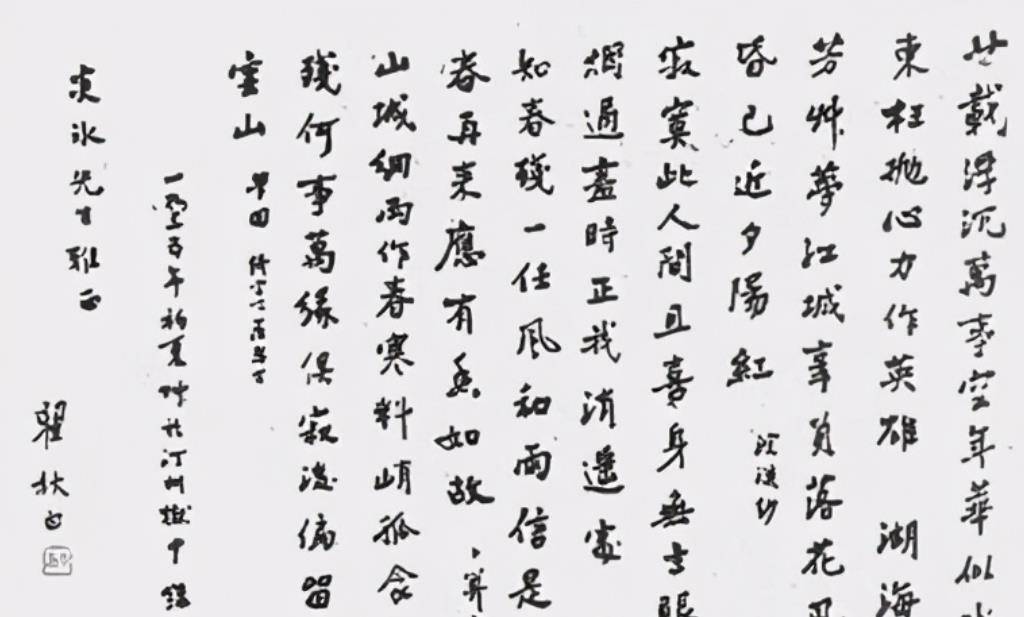 廿載浮沉萬事空年華似
東枉拋心力作英雄 湖海
芳艸夢江城辜負落花
昏已近夕陽紅 浣溪紗
寂寞此人間且喜身無主眼
過盡時正我消遙處
知春殘一任風和雨信是
春再來應有香如故
山城細雨作春寒料峭孤衾
殘何事萬緣俱寂後偏留
雲山
年初夏 於汀州獄中
冰先生雅正
瞿秋白